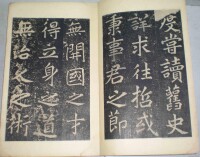 度嘗讀舊史
詳求往哲或
秉事君之節
無開國之才
得立身之道
無治人之術